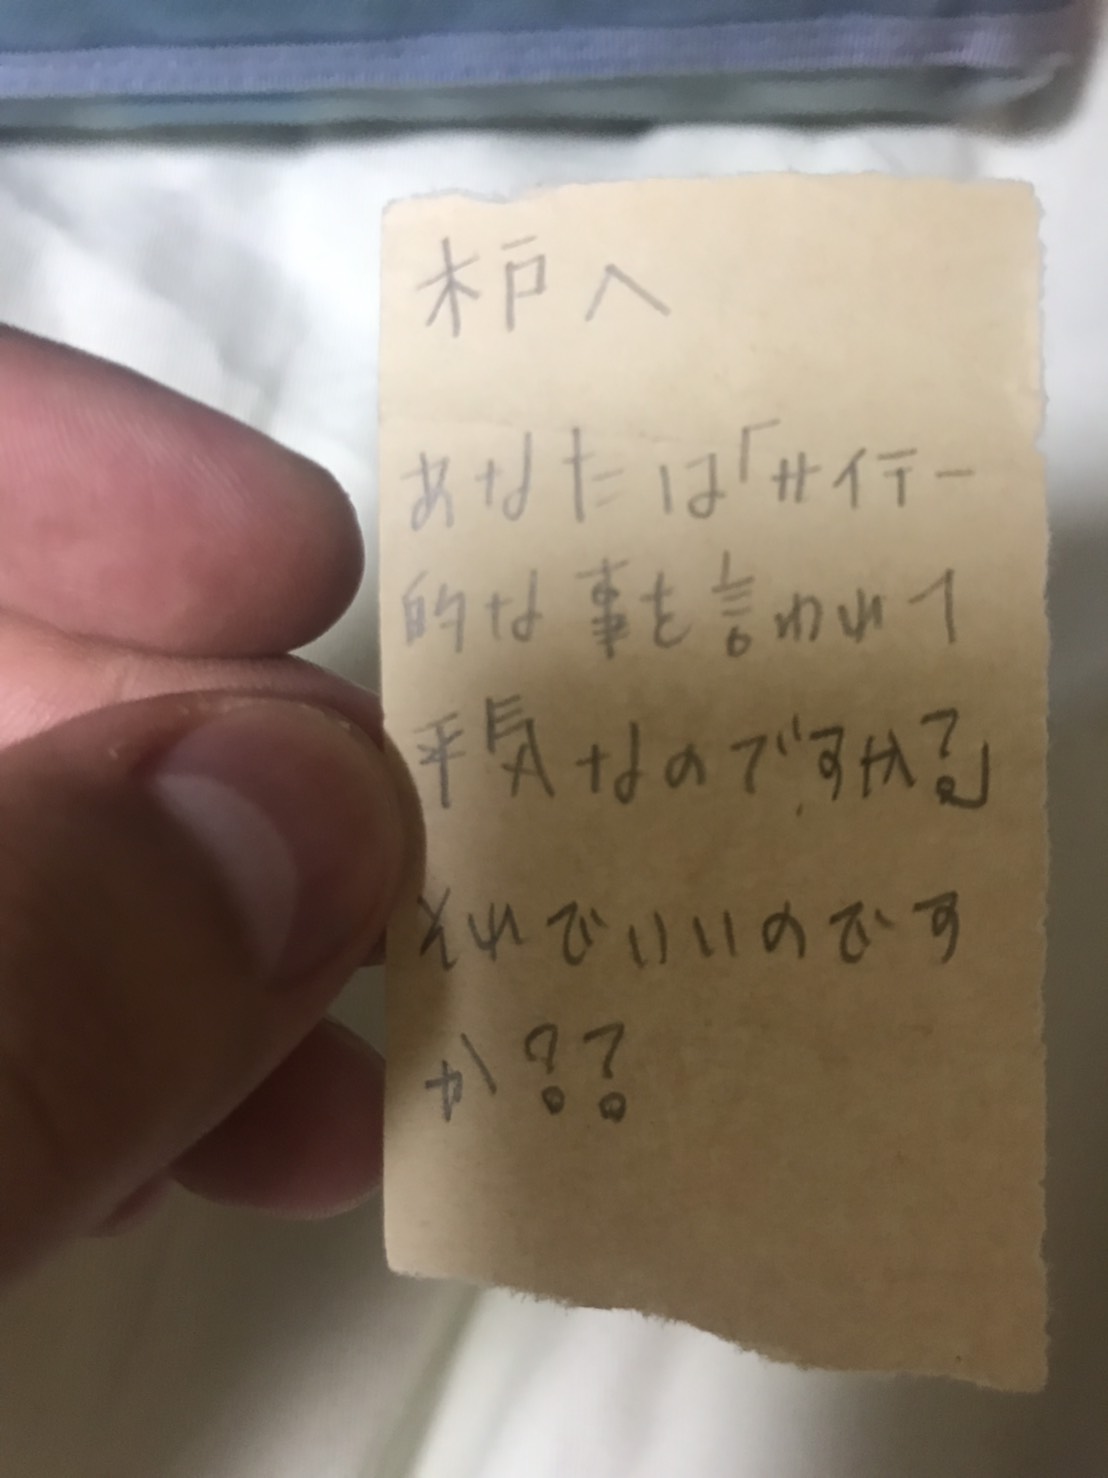 木戸へ
あなたは「サイテー
的な事を言われて
平気なのですか?」
それでいいのです
か??